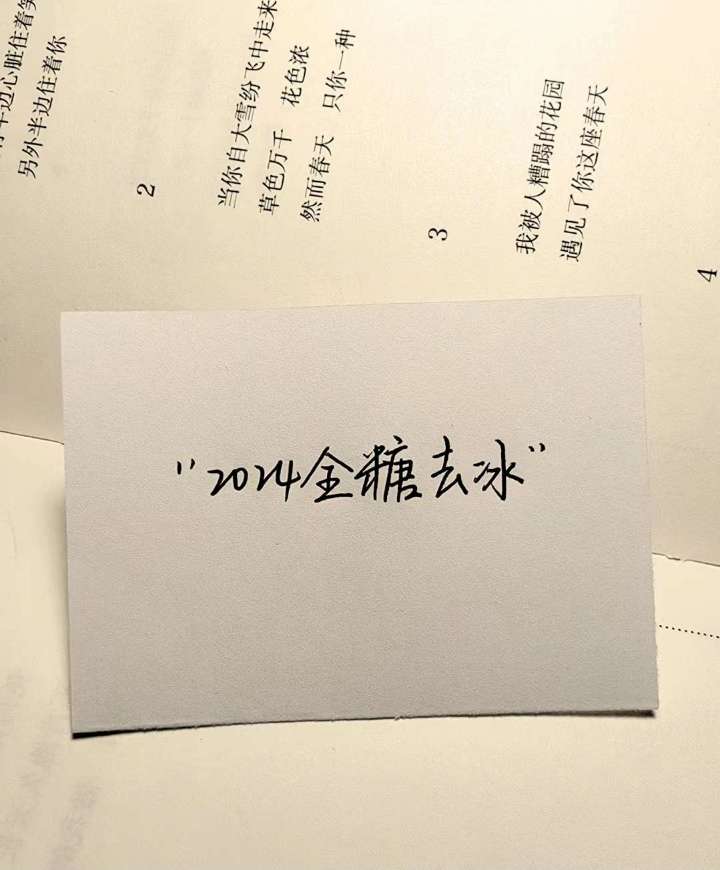 另外半边住着你
2
当你自大雪纷飞中走来
草色万千 花色浓
然而春天 只你一种
3
我被人糟蹋的花园
遇见了你这座春天
4
"2024全糖去冰"